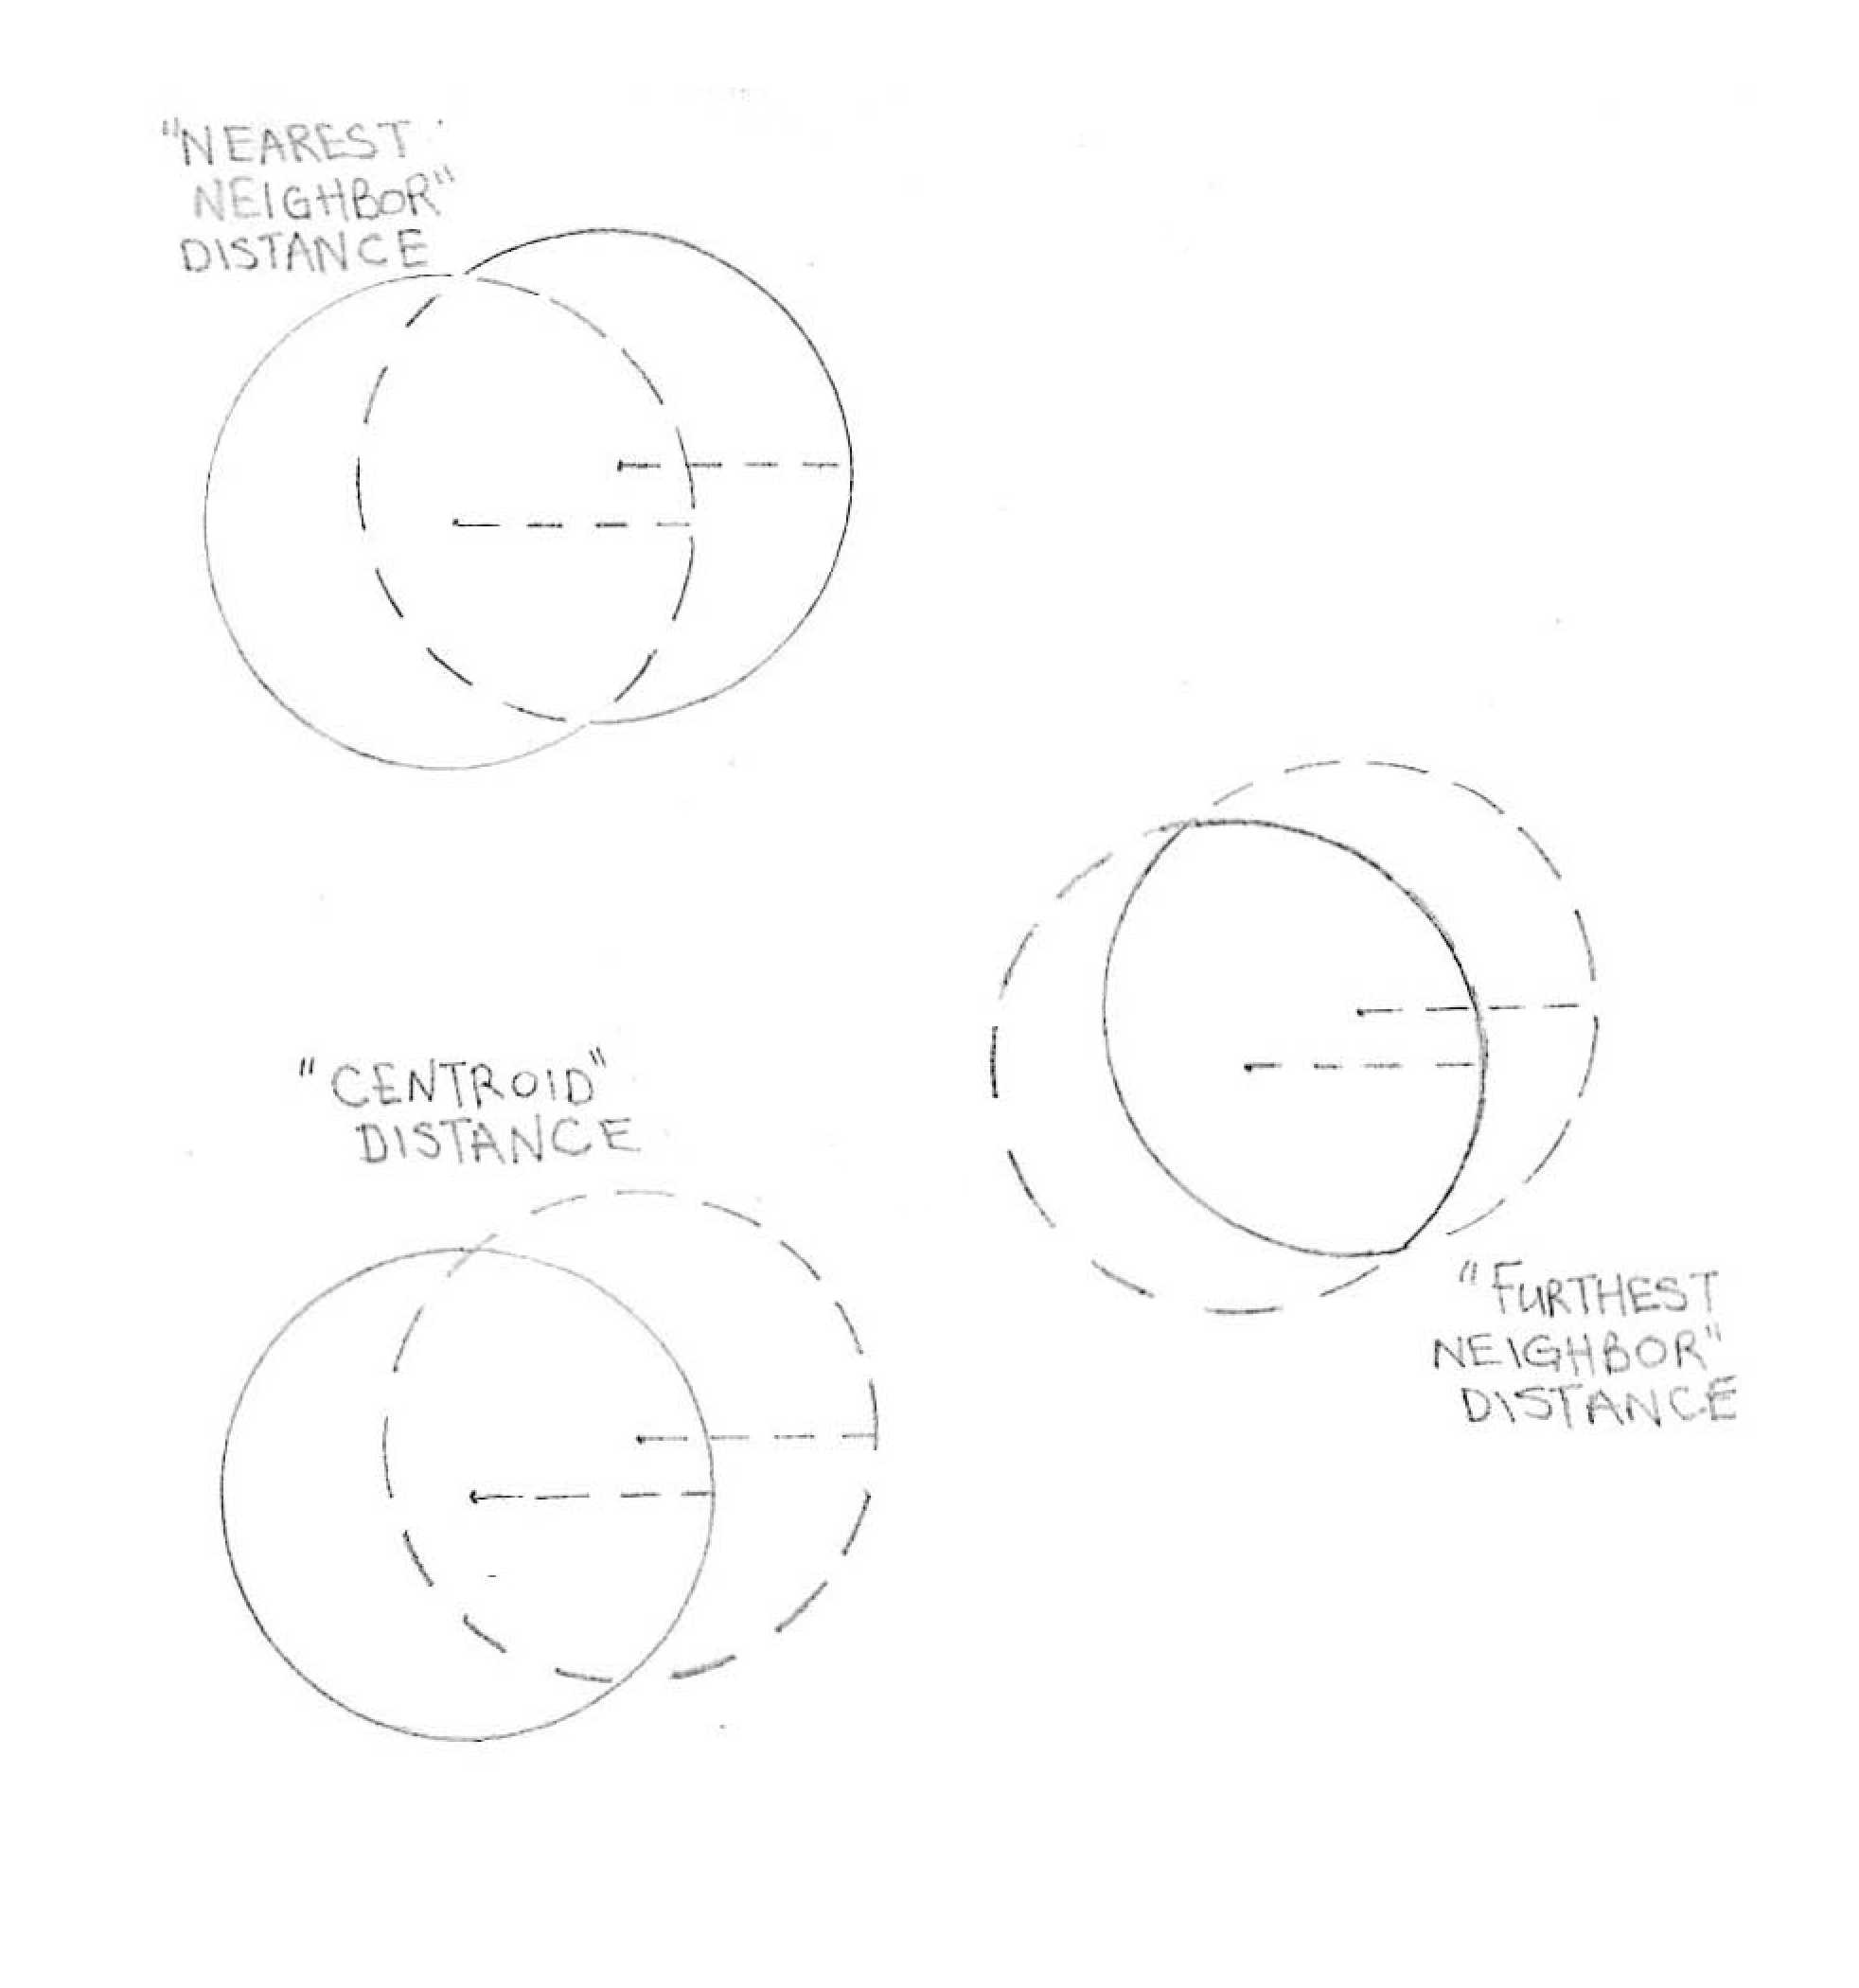 "NEAREST
NEIGHBOR"
DISTANCE
"CENTROID"
DISTANCE
"FURTHEST
NEIGHBOR"
DISTANCE